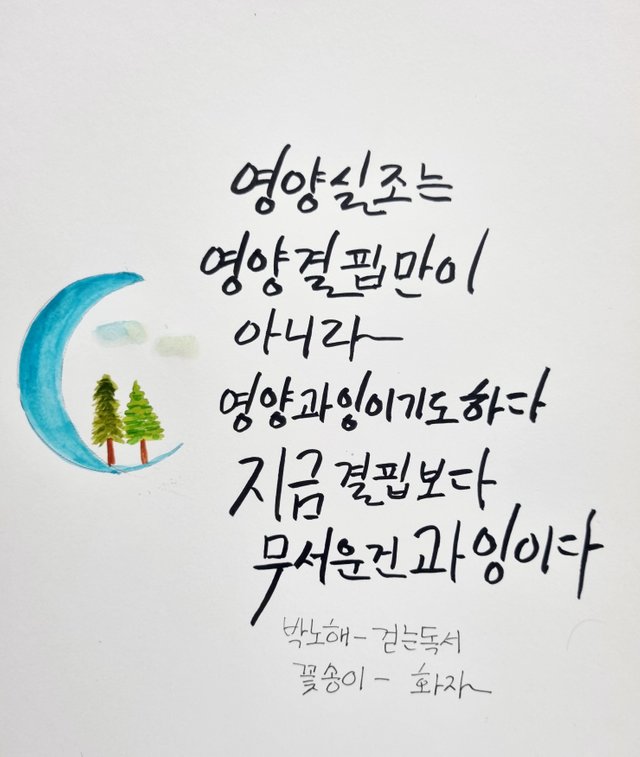 영양실조는
영양결핍만이
아니라~
영양과잉이기도하다
지금 결핍보다
무서운건 과잉이다
박노해 - 걷는독서
꽃송이 - 화자~